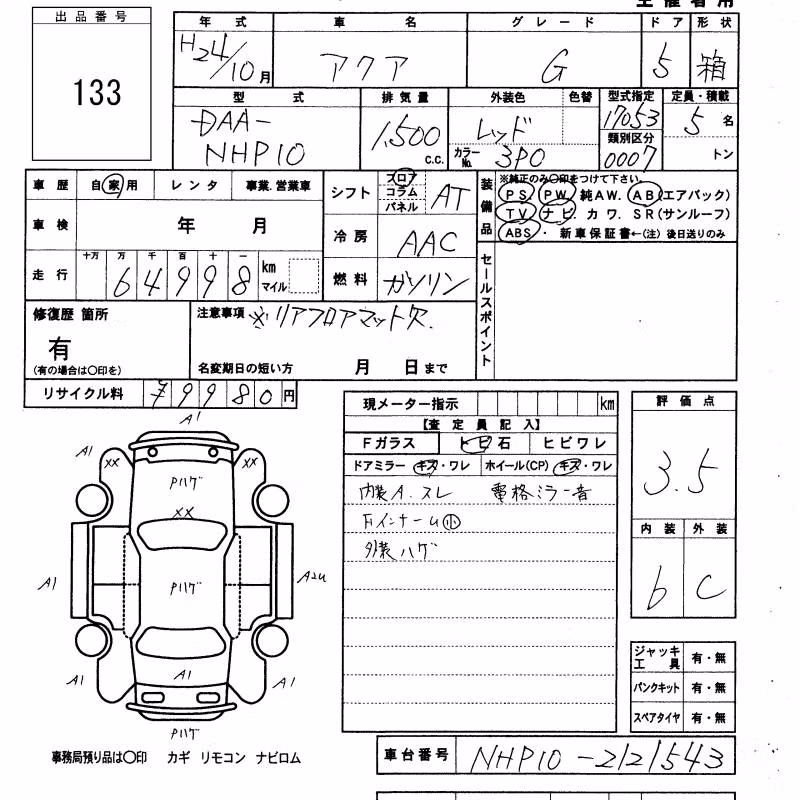 出品番号
133
年式 車名 グレード ドア 形状
H24/10月 アクア G 5 箱
型式 排気量 外装色 色替 型式指定 定員・積載
DAA-
NHP10
1,500 c.c.
レッド
カラーNo. 3P0
17053
類別区分
0007
5名
トン
車歴 自家用 レンタ 事業.営業車
シフト フロア コラム パネル AT
装備品
※純正のみ〇印をつけて下さい。
PS PW 純AW. AB(エアバック)
TV ナビ カワ. SR(サンルーフ)
ABS・ 新車保証書←(注) 後日送りのみ
車検 年 月
冷房 AAC
走行 十万 万 千 百 十 一
64998 km マイル
燃料 ガソリン
セールスポイント
修復歴 箇所
有
(有の場合は〇印を)
注意事項 ※リアフロアマット欠.
名変期日の短い方 月 日まで
リサイクル料 ¥9980円
現メーター指示 km
【査定員記入】
Fガラス トビ石 ヒビワレ
ドアミラー キズ・ワレ ホイール(CP) キズ・ワレ
内装A.スレ 電格ミラー音
Fインナー小
外装ハゲ
評価点
3.5
内装 外装
b C
ジャッキ工具 有・無
パンクキット 有・無
スペアタイヤ 有・無
A1
A1 XX XX A1
Pハゲ
XX
A1 Pハゲ A2U
A1 A1 A1
Pハゲ
事務局預り品は〇印 カギ リモコン ナビロム
車台番号 NHP10-2121543